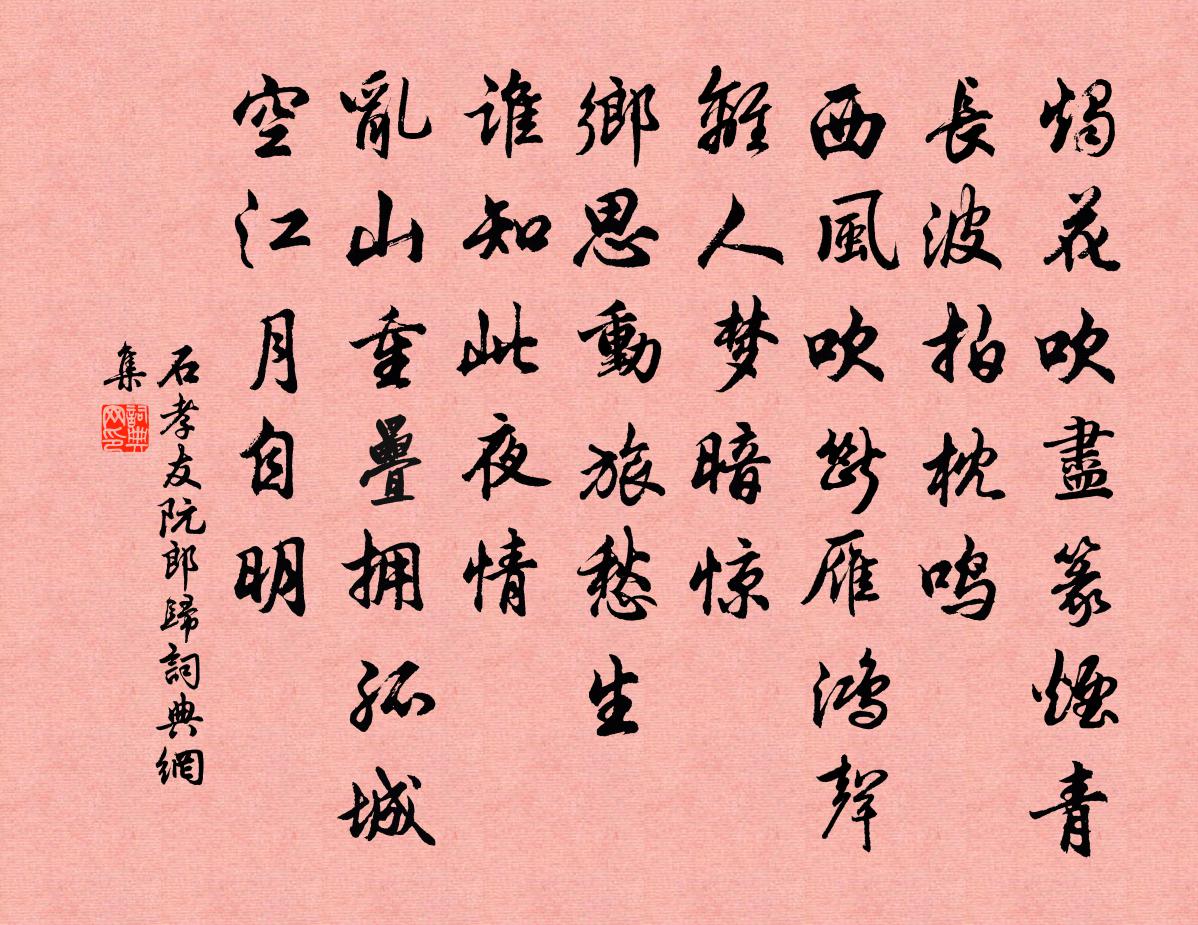 燭花吹盡篆煙青
長波拍枕鸣
西風吹斷雁鸿聲
離人梦暗惊
鄉思動旅愁生
誰知此夜情
亂山重疊拥孤城
空江月自明
石孝友阮郎歸詞典網
集
詞典网印